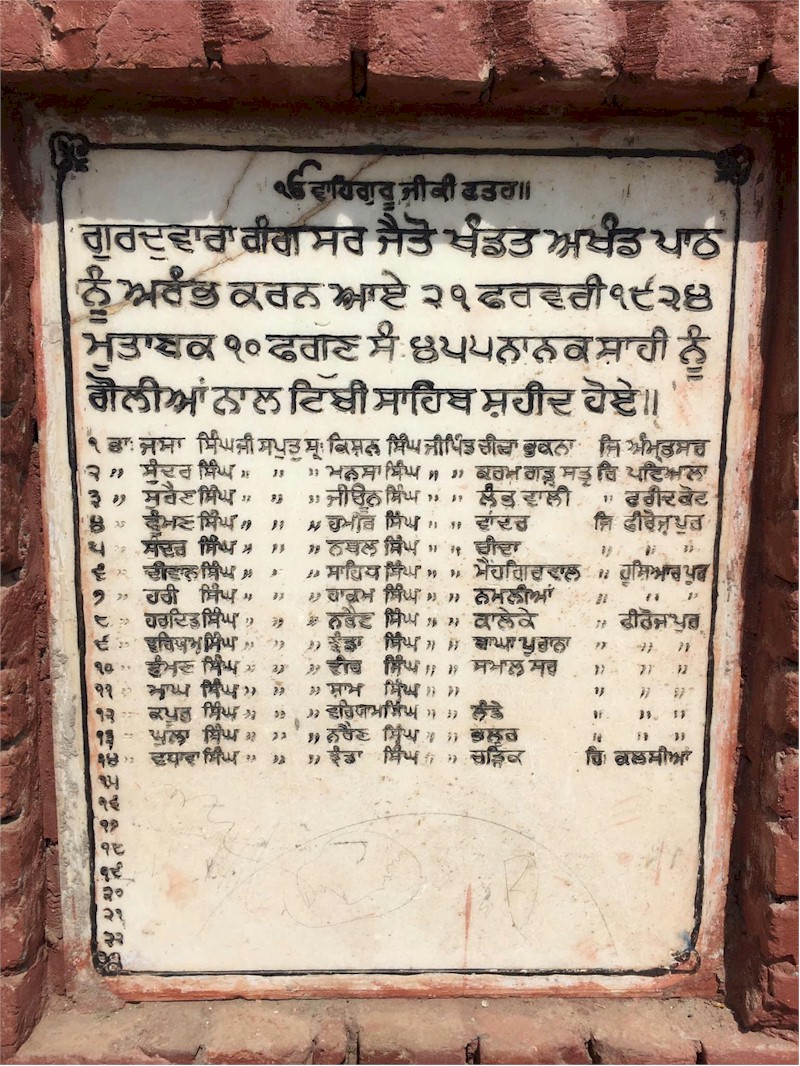 ੴ ਵਾਹਿਗੁਰੂ ਜੀ ਕੀ ਫਤਹ॥
ਗੁਰਦੁਵਾਰਾ ਗੰਗ ਸਰ ਜੈਤੋ ਖੰਡਤ ਅਖੰਡ ਪਾਠ
ਨੂੰ ਅਰੰਭ ਕਰਨ ਆਏ ੨੧ ਫਰਵਰੀ ੧੯੨੪
ਮੁਤਾਬਕ ੧੦ ਫਗੁਣ ਸੰ ੪੫੫ ਨਾਨਕ ਸ਼ਾਹੀ ਨੂੰ
ਗੋਲੀਆਂ ਨਾਲ ਟਿਬੀ ਸਾਹਿਬ ਸ਼ਹੀਦ ਹੋਏ॥
੧ ਭਾ: ਜਸਾ ਸਿੰਘ ਜੀ ਸਪੁਤ੍ਰ ਸ੍ਰ: ਕਿਸ਼ਨ ਸਿੰਘ ਜੀ ਪਿੰਡ ਚੀਚਾ ਭਕਨਾ ਜਿ ਅੰਮ੍ਰਤਸਰ
੨ " ਸੁੰਦਰ ਸਿੰਘ " " " ਮਨਸਾ ਸਿੰਘ " " ਕਰਮ ਗੜ੍ਹ ਸਤ੍ਰ ਰਿ ਪਟਿਆਲਾ
੩ " ਸੁਰੈਣ ਸਿੰਘ " " " ਜੀਊਨ ਸਿੰਘ " " ਲੰਭ ਵਾਲੀ " ਫਰੀਦਕੋਟ
੪ " ਘੁੰਮਣ ਸਿੰਘ " " " ਹਮੀਰ ਸਿੰਘ " " ਵਾਂਦਰ ਜਿ ਫੀਰੋਜ਼ਪੁਰ
੫ " ਸੁੰਦਰ ਸਿੰਘ " " " ਨਥਲ ਸਿੰਘ " " ਚੀਦਾ " " "
੬ " ਚੀਵਾਨ ਸਿੰਘ " " " ਸਾਹਿਬ ਸਿੰਘ " " ਮੈਹਗਿਰਵਾਲ " ਹੁਸਿਆਰਪੁਰ
੭ " ਹਰੀ ਸਿੰਘ " " " ਹਾਕਮ ਸਿੰਘ " " ਨਮਲੀਆਂ " " "
੮ " ਹਰਦਿਤ ਸਿੰਘ " " " ਸਿੰਘ " " ਕਾਲੇਕੇ " ਫੀਰੋਜਪੁਰ
੯ " ਵਰਿਯਾਮ ਸਿੰਘ " " " ਝੰਡਾ ਸਿੰਘ " " ਬਾਘਾ ਪੁਰਾਨਾ " " "
੧੦ " ਘੁੰਮਣ ਸਿੰਘ " " " ਵੀਰ ਸਿੰਘ " " ਸਮਾਲ ਸਰ " " "
੧੧ " ਮਾਘ ਸਿੰਘ " " " ਸ਼ਾਮ ਸਿੰਘ " " " " "
੧੨ " ਕਪੂਰ ਸਿੰਘ " " " ਵਰਿਯਾਮ ਸਿੰਘ " " ਲੰਡੇ " " "
੧੩ " ਘੁਲਾ ਸਿੰਘ " " " ਨਰੈਣ ਸਿੰਘ " " ਭਲੂਰ " " "
੧੪ " ਵਧਾਵਾ ਸਿੰਘ " " " ਝੰਡਾ ਸਿੰਘ " " ਚੜਿਕ ਰਿ: ਕਲਸੀਆਂ
੧੫
੧੬
੧੭
੧੮
੧੯
੨੦
੨੧
੨੨